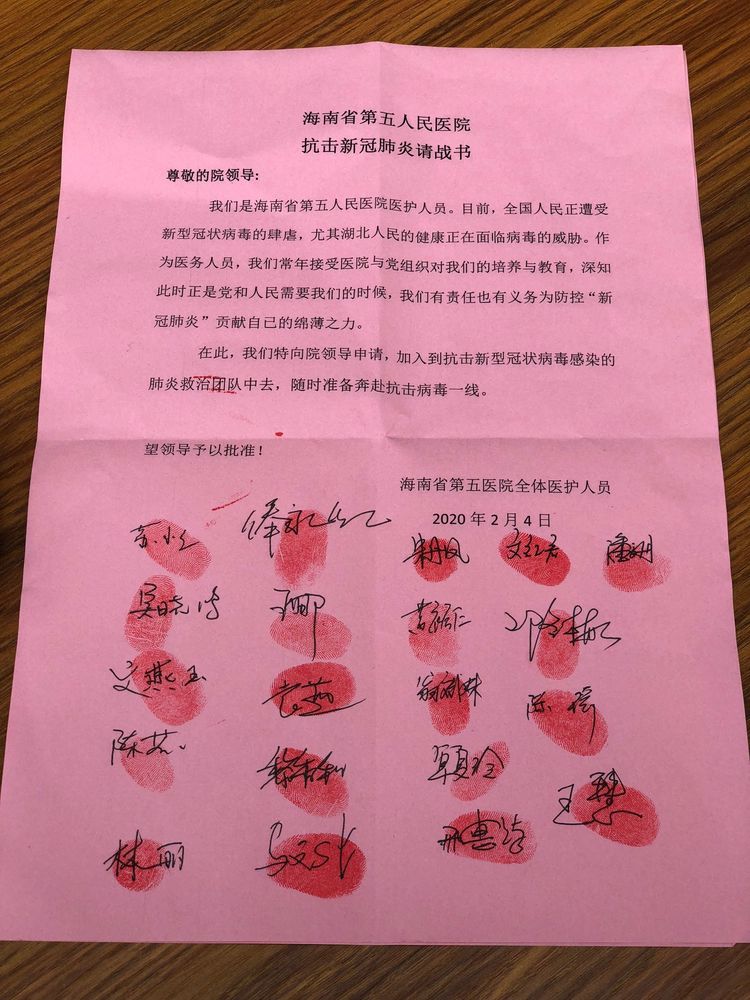 海南省第五人民医院
抗击新冠肺炎请战书
尊敬的院领导:
我们是海南省第五人民医院医护人员。目前，全国人民正遭受
新型冠状病毒的肆虐，尤其湖北人民的健康正在面临病毒的威胁。作
为医务人员，我们常年接受医院与党组织对我们的培养与教育，深知
此时正是党和人民需要我们的时候，我们有责任也有义务为防控“新
冠肺炎”贡献自已的绵薄之力。
在此，我们特向院领导申请，加入到抗击新型冠状病毒感染的
肺炎救治团队中去，随时准备奔赴抗击病毒一线。
望领导予以批准！
海南省第五医院全体医护人员
2020 年 2 月 4 日
王娜
文燕玉
陈瑶
王慧
林丽